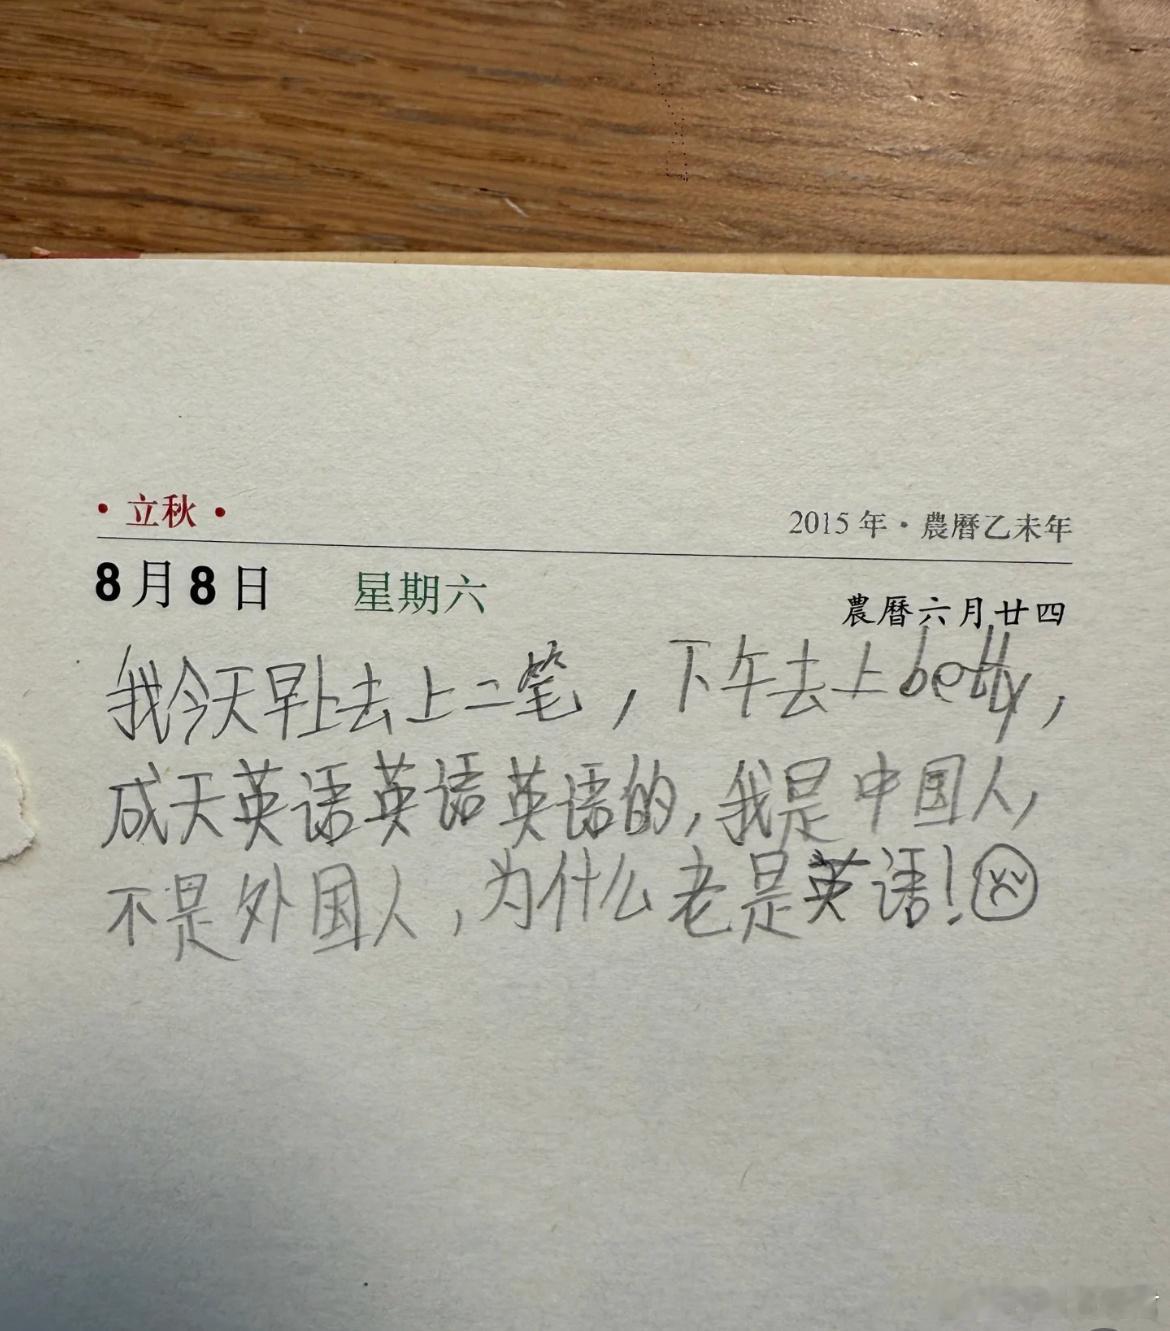 • 立秋 • 2015 年 · 農曆乙未年
8月8日 星期六 農曆六月廿四
我今天早上去上二笔，下午去上betty，
成天英语英语英语的，我是中国人，
不是外国人，为什么老是英语！